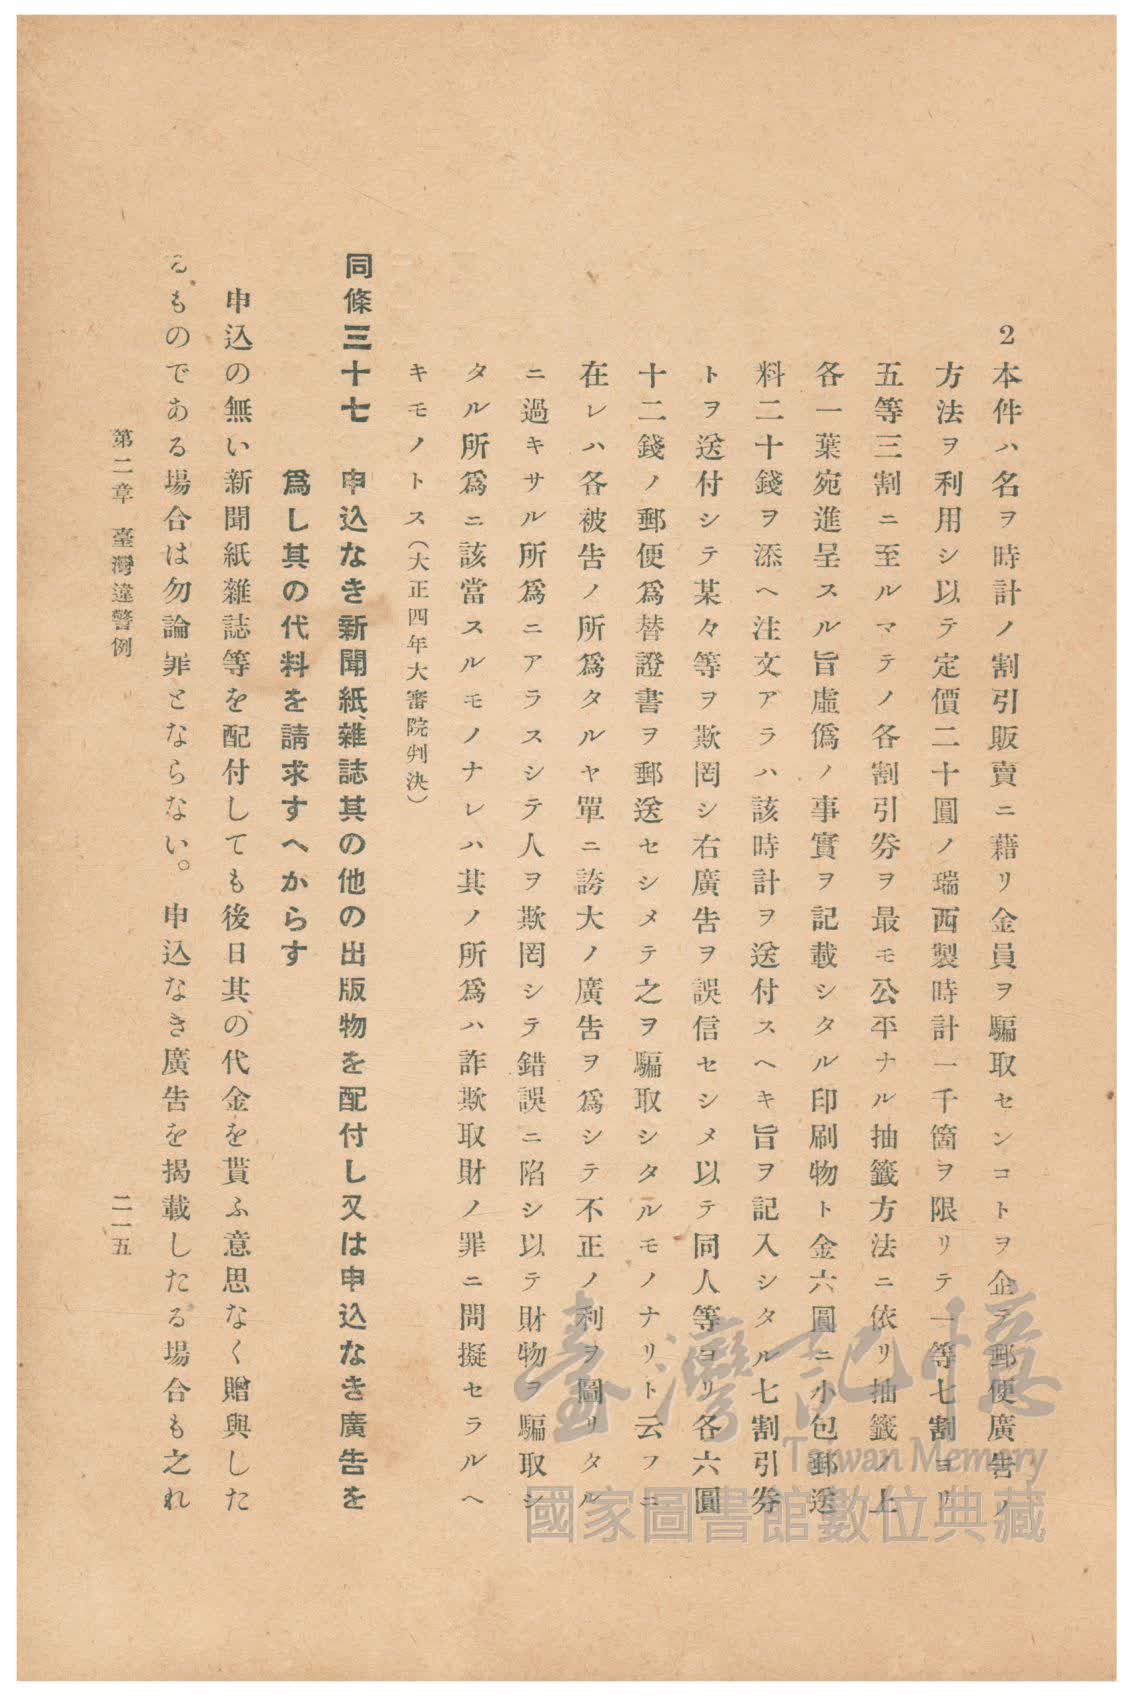 2本件ハ名ヲ時計ノ割引販賣ニ藉リ金員ヲ騙取センコトヲ企テ郵便廣告ノ
方法ヲ利用シ以テ定價二十圓ノ瑞西製時計一千箇ヲ限リテ一等七割ヨリ
五等三割ニ至ルマテノ各割引券ヲ最モ公平ナル抽籤方法ニ依リ抽籤ノ上
各一葉宛進呈スル旨虛僞ノ事實ヲ記載シタル印刷物ト金六圓ニ小包郵送
料二十錢ヲ添ヘ注文アラハ該時計ヲ送付スヘキ旨ヲ記入シタル七割引券
トヲ送付シテ某々等ヲ欺罔シ右廣告ヲ誤信セシメ以テ同人等ヨリ各六圓
十二錢ノ郵便爲替證書ヲ郵送セシメテ之ヲ騙取シタルモノナリト云フニ
在レハ各被告ノ所爲タルヤ單ニ誇大ノ廣告ヲ爲シテ不正ノ利ヲ圖リタル
ニ過キサル所爲ニアラスシテ人ヲ欺罔シテ錯誤ニ陷シ以テ財物ヲ騙取シ
タル所爲ニ該當スルモノナレハ其ノ所爲ハ詐欺取財ノ罪ニ問擬セラルヘ
キモノトス(大正四年大審院判決)
同條三十七　申込なき新聞紙、雜誌其の他の出版物を配付し又は申込なき廣告を
爲し其の代料を請求すへからす
申込の無い新聞紙雜誌等を配付しても後日其の代金を貰ふ意思なく贈與した
るものである場合は勿論罪とならない。申込なき廣告を揭載したる場合も之れ
第二章　臺灣違警例　二一五
臺灣記憶
Taiwan Memory
國家圖書館數位典藏